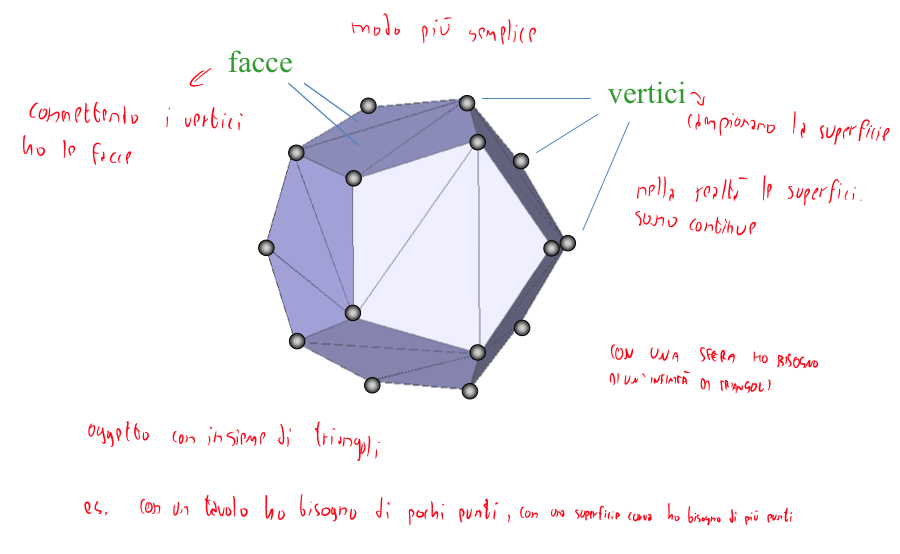 modo più semplice
facce
vertici
connettendo i vertici
ho le facce
campionano la superficie
nella realtà le superfici
sono continue
CON UNA SFERA HO BISOGNO
DI UN'INFINITÀ DI TRIANGOLI
oggetto con insieme di triangoli
es. con un tavolo ho bisogno di pochi punti, con una superficie curva ho bisogno di più punti